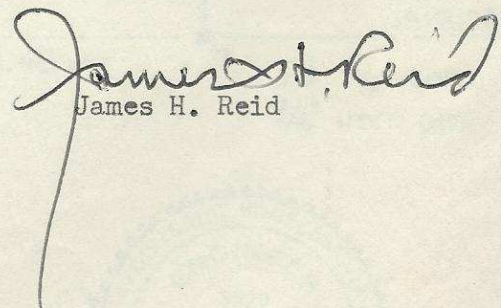 James H. Reid
James H. Reid